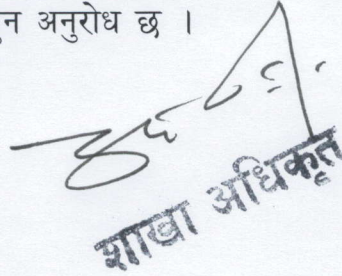 न अनुरोध छ ।
शाखा अधिकृत